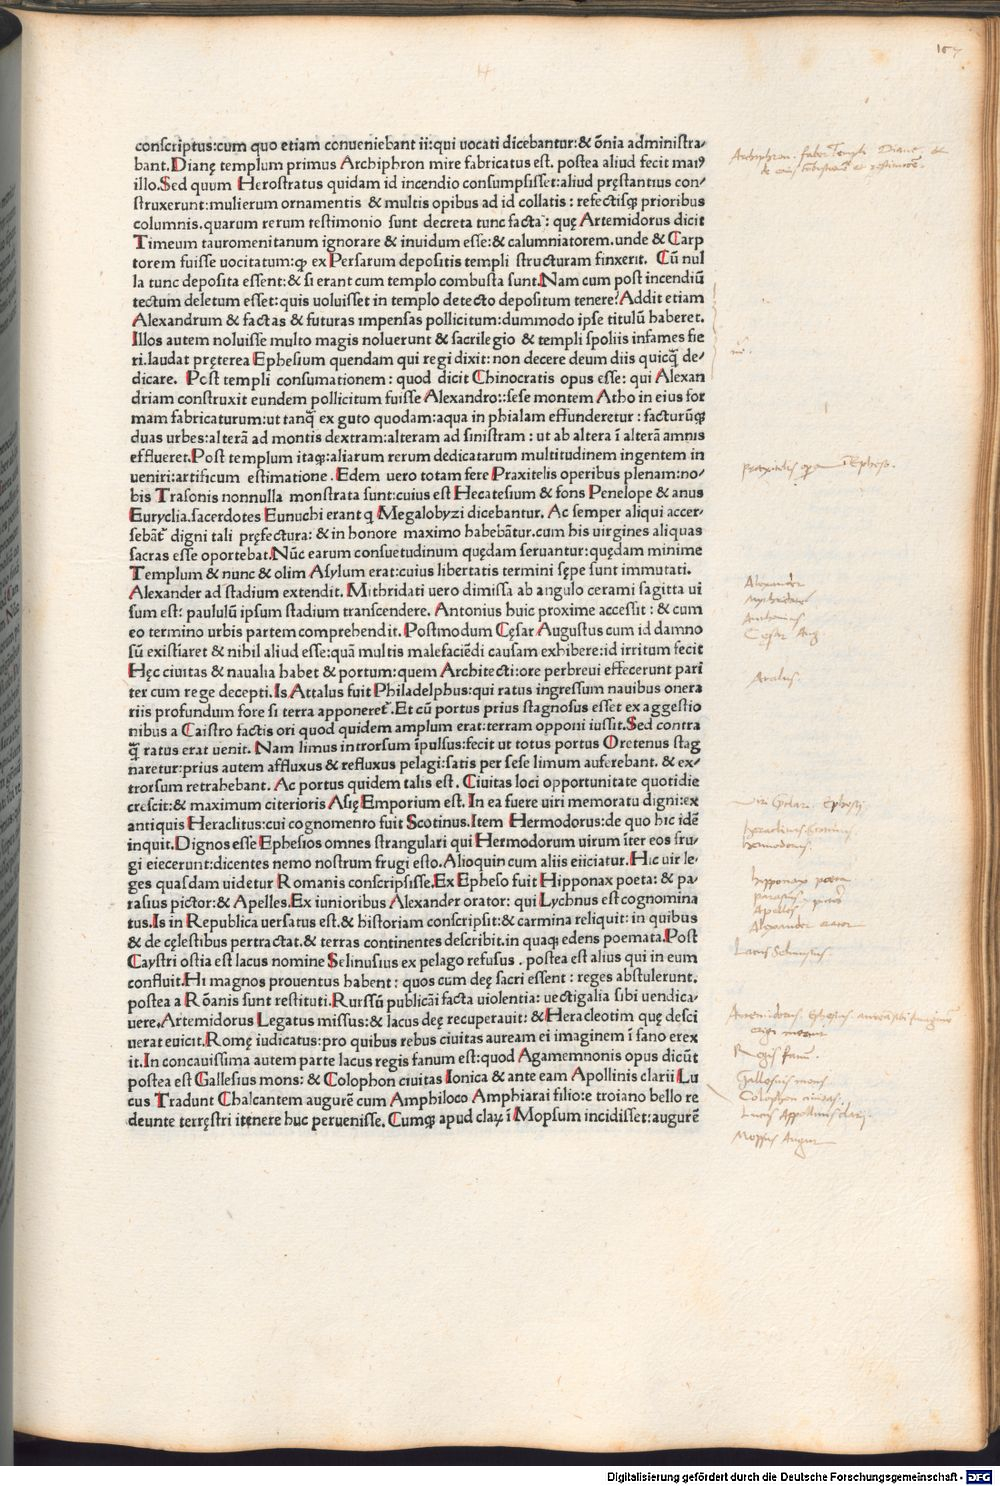 167
conscriptus:cum quo etiam conueniebant ii:qui uocati dicebantur:& õnia administra-
bant.Dianę templum primus Archiphron mire fabricatus est. postea aliud fecit maiꝰ
illo.Sed quum Herostratus quidam id incendio consumpsisset:aliud pręstantius con-
struxerunt:mulierum ornamentis & multis opibus ad id collatis : refectisqꝫ prioribus
columnis.quarum rerum testimonio sunt decreta tunc facta : quę Artemidorus dicit
Timeum tauromenitanum ignorare & inuidum esse:& calumniatorem.unde & Carp
torem fuisse uocitatum:ꝙ ex Persarum depositis templi structuram finxerit. Cũ nul
la tunc deposita essent:& si erant cum templo combusta sunt.Nam cum post incendiũ
tectum deletum esset:quis uoluisset in templo detecto depositum tenere?Addit etiam
Alexandrum & factas & futuras impensas pollicitum:dummodo ipse titulũ haberet.
Illos autem noluisse multo magis noluerunt & sacrilegio & templi spoliis infames fie
ri.laudat pręterea Ephesium quendam qui regi dixit:non decere deum diis quicq̃ de-
dicare. Post templi consumationem : quod dicit Chinocratis opus esse: qui Alexan
driam construxit eundem pollicitum fuisse Alexandro::sese montem Atho in eius for
mam fabricaturum:ut tanq̃ ex guto quodam:aqua in phialam effunderetur : facturũqꝫ
duas urbes:alterã ad montis dextram:alteram ad sinistram : ut ab altera ĩ alterã amnis
efflueret.Post templum itaqꝫ:aliarum rerum dedicatarum multitudinem ingentem in
ueniri:artificum estimatione . Edem uero totam fere Praxitelis operibus plenam:no-
bis Trasonis nonnulla monstrata sunt:cuius est Hecatesium & fons Penelope & anus
Euryclia.sacerdotes Eunuchi erant q Megalobyzi dicebantur. Ac semper aliqui accer-
sebãt᷑ digni tali pręfectura: & in honore maximo habebãtur.cum his uirgines aliquas
sacras esse oportebat.Nũc earum consuetudinum quędam seruantur:quędam minime
Templum & nunc & olim Asylum erat:cuius libertatis termini sępe sunt immutati.
Alexander ad stadium extendit. Mithridati uero dimissa ab angulo cerami sagitta ui
sum est: paululũ ipsum stadium transcendere. Antonius huic proxime accessit : & cum
eo termino urbis partem comprehendit. Postmodum Cęsar Augustus cum id damno
sũ existiaret & nihil aliud esse:quã multis malefaciẽdi causam exhibere:id irritum fecit
Hęc ciuitas & naualia habet & portum:quem Architecti:ore perbreui effecerunt pari
ter cum rege decepti.Is.Attalus fuit Philadelphus:qui ratus ingressum nauibus onera
riis profundum fore si terra apponeret᷑.Et cũ portus prius stagnosus esset ex aggestio
nibus a Caistro factis ori quod quidem amplum erat:terram opponi iussit.Sed contra
q̃ ratus erat uenit. Nam limus introrsum ĩpulsus:fecit ut totus portus Oretenus stag
naretur:prius autem affluxus & refluxus pelagi:satis per sese limum auferebant. & ex-
trorsum retrahebant. Ac portus quidem talis est . Ciuitas loci opportunitate quotidie
crescit:& maximum citerioris Asię Emporium est. In ea fuere uiri memoratu digni:ex
antiquis Heraclitus:cui cognomento fuit Scotinus.Item Hermodorus:de quo hic idẽ
inquit.Dignos esse Ephesios omnes strangulari qui Hermodorum uirum ĩter eos fru-
gi eiecerunt:dicentes nemo nostrum frugi esto.Alioquin cum aliis eiiciatur.Hic uir le-
ges quasdam uidetur Romanis conscripsisse.Ex Epheso fuit Hipponax poeta: & pa-
rasius pictor:& Apelles.Ex iunioribus Alexander orator: qui Lychnus est cognomina
tus.Is in Republica uersatus est.& historiam conscripsit:& carmina reliquit: in quibus
& de cęlestibus pertractat.& terras continentes describit.in quaqꝫ edens poemata.Post
Caystri ostia est lacus nomine Selinusius ex pelago refusus . postea est alius qui in eum
confluit.Hi magnos prouentus habent : quos cum deę sacri essent : reges abstulerunt.
postea a Rõanis sunt restituti.Rursũ publicãi facta uiolentia: uectigalia sibi uendica-
uere.Artemidorus Legatus missus:& lacus deę recuperauit: & Heracleotim quę desci
uerat euicit.Romę iudicatus:pro quibus rebus ciuitas auream ei imaginem ĩ fano erex
it.In concauissima autem parte lacus regis fanum est:quod Agamemnonis opus dicũt
postea est Gallesius mons: & Colophon ciuitas Ionica & ante eam Apollinis clarii Lu
cus Tradunt Chalcantem augurẽ cum Amphiloco Amphiarai filio:e troiano bello re
deunte terręstri itenere huc peruenisse. Cumqꝫ apud claꝝ ĩ Mopsum incidisset:augurẽ
Archiphron faber Templi Dianę et
Praxitelis opa Ephesi.
Alexander
Mythridates
Antonius
Cesar Aug.
Atalus.
Viri Ephesi
Heraclitus
hermodorus.
hipponax poeta
parasius pictor
Apelles
Alexander orator
Lacus Selinusius.
Regis fanum.
Gallesius mons
Colophon ciuitas.
Lucus Appollinis clarij.
Mopsus Augur
Digitalisierung gefördert durch die Deutsche Forschungsgemeinschaft - DFG